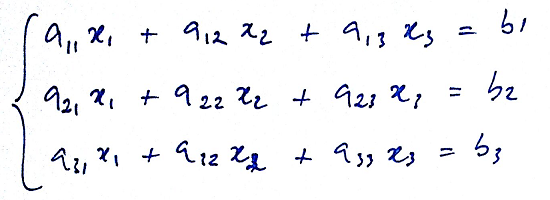 a₁₁ x₁ + a₁₂ x₂ + a₁₃ x₃ = b₁
a₂₁ x₁ + a₂₂ x₂ + a₂₃ x₃ = b₂
a₃₁ x₁ + a₃₂ x₂ + a₃₃ x₃ = b₃